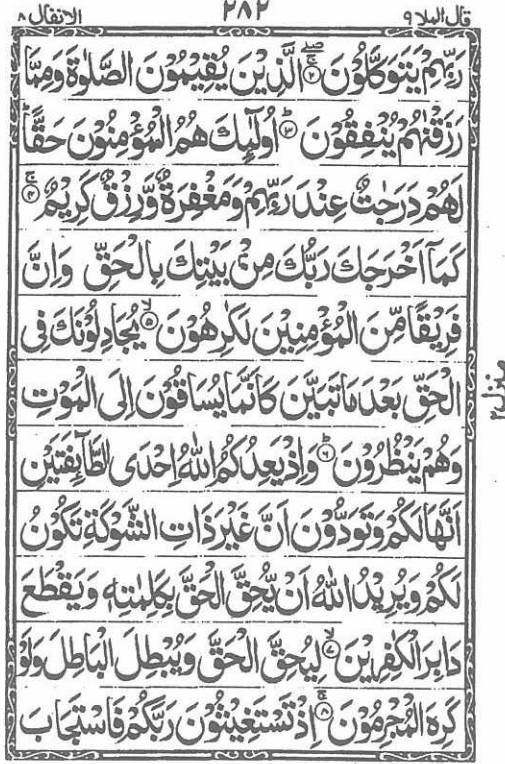 قال الملا ٩ ٢٨٢ الانفال ٨
رَبِّهِمْ يَتَوَكَّلُوْنَ ۚۖ﴿۲﴾ الَّذِيْنَ يُقِيْمُوْنَ الصَّلٰوةَ وَمِمَّا
رَزَقْنٰهُمْ يُنْفِقُوْنَ ؕ﴿۳﴾ اُولٰٓئِكَ هُمُ الْمُؤْمِنُوْنَ حَقًّا ؕ
لَهُمْ دَرَجٰتٌ عِنْدَ رَبِّهِمْ وَمَغْفِرَةٌ وَّرِزْقٌ كَرِيْمٌ ۚ﴿۴﴾
كَمَاۤ اَخْرَجَكَ رَبُّكَ مِنْۢ بَيْتِكَ بِالْحَقِّ وَاِنَّ
فَرِيْقًا مِّنَ الْمُؤْمِنِيْنَ لَكٰرِهُوْنَ ۙ﴿۵﴾ يُجَادِلُوْنَكَ فِى
الْحَقِّ بَعْدَ مَا تَبَيَّنَ كَاَنَّمَا يُسَاقُوْنَ اِلَى الْمَوْتِ
وَهُمْ يَنْظُرُوْنَ ؕ﴿۶﴾ وَاِذْ يَعِدُكُمُ اللّٰهُ اِحْدَى الطَّآئِفَتَيْنِ
اَنَّهَا لَكُمْ وَتَوَدُّوْنَ اَنَّ غَيْرَ ذَاتِ الشَّوْكَةِ تَكُوْنُ
لَكُمْ وَيُرِيْدُ اللّٰهُ اَنْ يُّحِقَّ الْحَقَّ بِكَلِمٰتِهٖ وَيَقْطَعَ
دَابِرَ الْكٰفِرِيْنَ ۙ﴿۷﴾ لِيُحِقَّ الْحَقَّ وَيُبْطِلَ الْبَاطِلَ وَلَوْ
كَرِهَ الْمُجْرِمُوْنَ ۚ﴿۸﴾ اِذْ تَسْتَغِيْثُوْنَ رَبَّكُمْ فَاسْتَجَابَ
منزل ٢